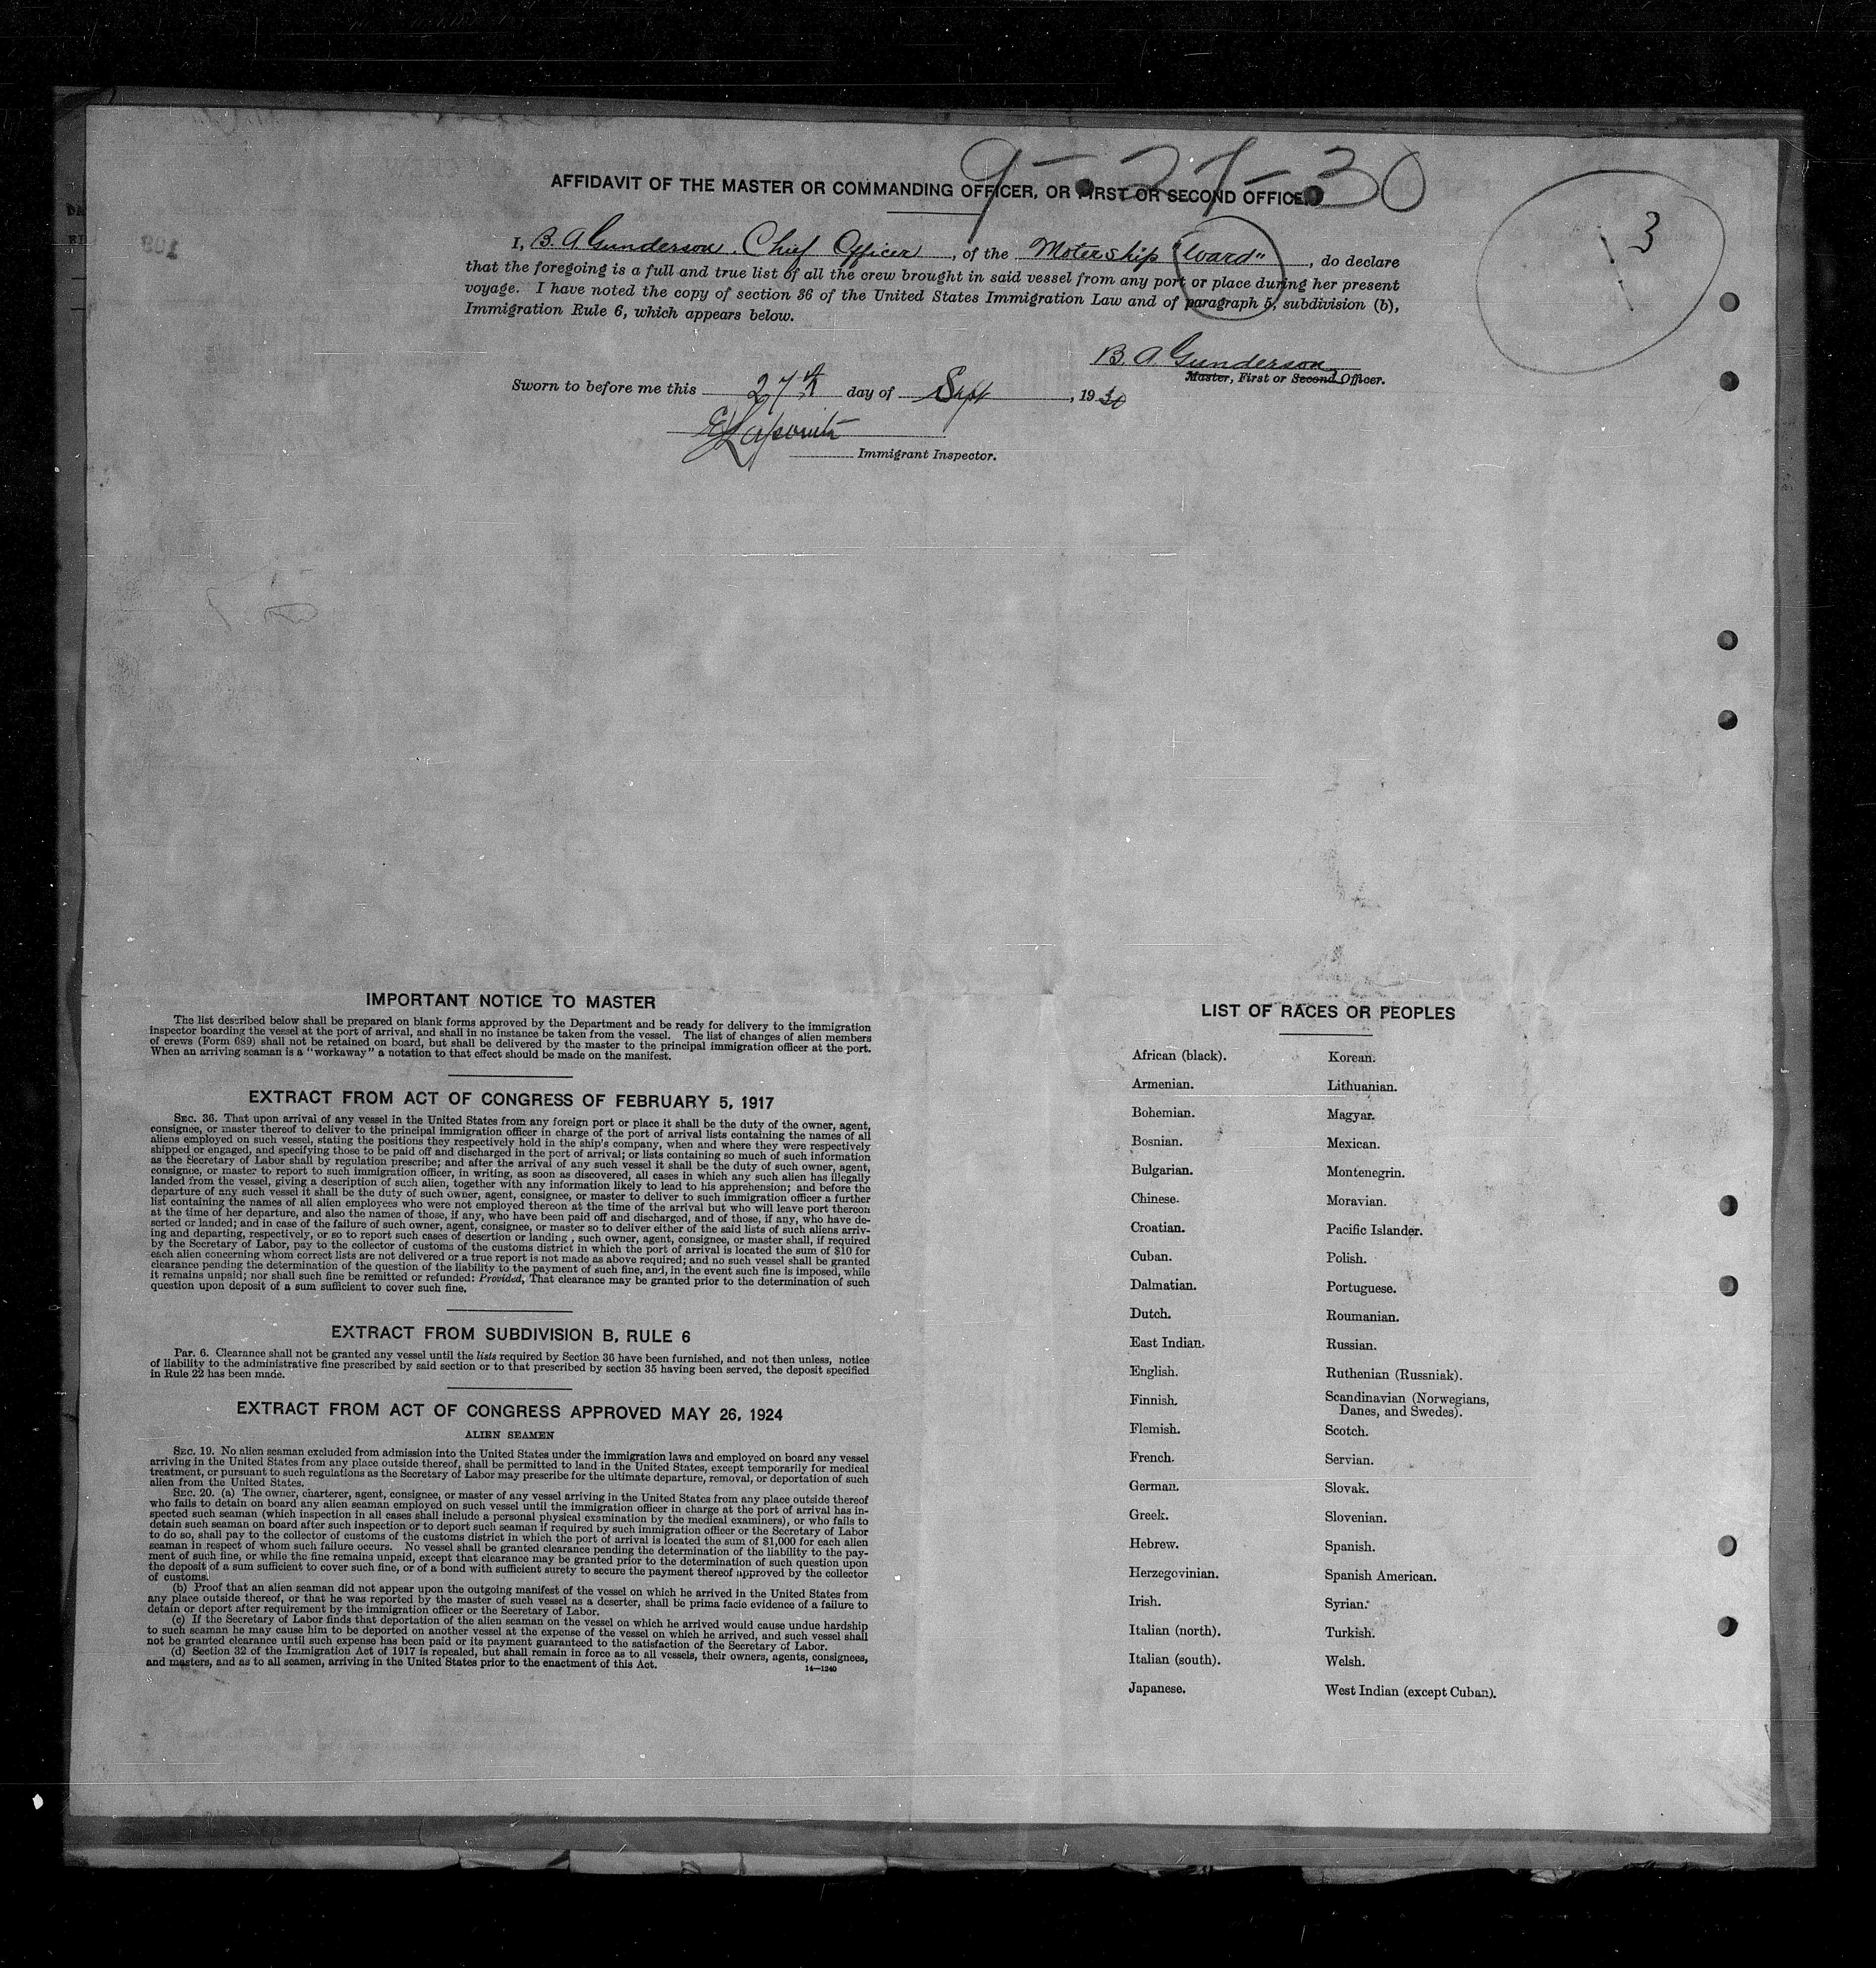 9-27-30
AFFIDAVIT OF THE MASTER OR COMMANDING OFFICER, OR FIRST OR SECOND OFFICER
3
I, B. A. Gunderson, Chief Officer, of the Motorship "Ward", do declare
that the foregoing is a full and true list of all the crew brought in said vessel from any port or place during her present
voyage. I have noted the copy of section 36 of the United States Immigration Law and of paragraph 5, subdivision (b),
Immigration Rule 6, which appears below.
B. A. Gunderson
Master, First or Second Officer.
Sworn to before me this 27th day of Sept, 1930
Immigrant Inspector.
IMPORTANT NOTICE TO MASTER
The list described below shall be prepared on blank forms approved by the Department and be ready for delivery to the immigration
inspector boarding the vessel at the port of arrival, and shall in no instance be taken from the vessel. The list of changes of alien members
of crews (Form 689) shall not be retained on board, but shall be delivered by the master to the principal immigration officer at the port.
When an arriving seaman is a "workaway" a notation to that effect should be made on the manifest.
EXTRACT FROM ACT OF CONGRESS OF FEBRUARY 5, 1917
SEC. 36. That upon arrival of any vessel in the United States from any foreign port or place it shall be the duty of the owner, agent,
consignee, or master thereof to deliver to the principal immigration officer in charge of the port of arrival lists containing the names of all
aliens employed on such vessel, stating the positions they respectively hold in the ship's company, when and where they were respectively
shipped or engaged, and specifying those to be paid off and discharged in the port of arrival; or lists containing so much of such information
as the Secretary of Labor shall by regulation prescribe; and after the arrival of any such vessel it shall be the duty of such owner, agent,
consignee, or master to report to such immigration officer, in writing, as soon as discovered, all cases in which any such alien has illegally
landed from the vessel, giving a description of such alien, together with any information likely to lead to his apprehension; and before the
departure of any such vessel it shall be the duty of such owner, agent, consignee, or master to deliver to such immigration officer a further
list containing the names of all alien employees who were not employed thereon at the time of the arrival but who will leave port thereon
at the time of her departure, and also the names of those, if any, who have been paid off and discharged, and of those, if any, who have de-
serted or landed; and in case of the failure of such owner, agent, consignee, or master so to deliver either of the said lists of such aliens arriv-
ing and departing, respectively, or so to report such cases of desertion or landing, such owner, agent, consignee, or master shall, if required
by the Secretary of Labor, pay to the collector of customs of the customs district in which the port of arrival is located the sum of $10 for
each alien concerning whom correct lists are not delivered or a true report is not made as above required; and no such vessel shall be granted
clearance pending the determination of the question of the liability to the payment of such fine, and, in the event such fine is imposed, while
it remains unpaid; nor shall such fine be remitted or refunded: Provided, That clearance may be granted prior to the determination of such
question upon deposit of a sum sufficient to cover such fine.
EXTRACT FROM SUBDIVISION B, RULE 6
Par. 6. Clearance shall not be granted any vessel until the lists required by Section 36 have been furnished, and not then unless, notice
of liability to the administrative fine prescribed by said section or to that prescribed by section 35 having been served, the deposit specified
in Rule 22 has been made.
EXTRACT FROM ACT OF CONGRESS APPROVED MAY 26, 1924
ALIEN SEAMEN
SEC. 19. No alien seaman excluded from admission into the United States under the immigration laws and employed on board any vessel
arriving in the United States from any place outside thereof, shall be permitted to land in the United States, except temporarily for medical
treatment, or pursuant to such regulations as the Secretary of Labor may prescribe for the ultimate departure, removal, or deportation of such
alien from the United States.
SEC. 20. (a) The owner, charterer, agent, consignee, or master of any vessel arriving in the United States from any place outside thereof
who fails to detain on board any alien seaman employed on such vessel until the immigration officer in charge at the port of arrival has in-
spected such seaman (which inspection in all cases shall include a personal physical examination by the medical examiners), or who fails to
detain such seaman on board after such inspection or to deport such seaman if required by such immigration officer or the Secretary of Labor
to do so, shall pay to the collector of customs of the customs district in which the port of arrival is located the sum of $1,000 for each alien
seaman in respect of whom such failure occurs. No vessel shall be granted clearance pending the determination of the liability to the pay-
ment of such fine, or while the fine remains unpaid, except that clearance may be granted prior to the determination of such question upon
the deposit of a sum sufficient to cover such fine, or of a bond with sufficient surety to secure the payment thereof approved by the collector
of customs.
(b) Proof that an alien seaman did not appear upon the outgoing manifest of the vessel on which he arrived in the United States from
any place outside thereof, or that he was reported by the master of such vessel as a deserter, shall be prima facie evidence of a failure to
detain or deport after requirement by the immigration officer or the Secretary of Labor.
(c) If the Secretary of Labor finds that deportation of the alien seaman on the vessel on which he arrived would cause undue hardship
to such seaman he may cause him to be deported on another vessel at the expense of the vessel on which he arrived, and such vessel shall
not be granted clearance until such expense has been paid or its payment guaranteed to the satisfaction of the Secretary of Labor.
(d) Section 32 of the Immigration Act of 1917 is repealed, but shall remain in force as to all vessels, their owners, agents, consignees,
and masters, and as to all seamen, arriving in the United States prior to the enactment of this Act.
14—1240
LIST OF RACES OR PEOPLES
African (black). Korean.
Armenian. Lithuanian.
Bohemian. Magyar.
Bosnian. Mexican.
Bulgarian. Montenegrin.
Chinese. Moravian.
Croatian. Pacific Islander.
Cuban. Polish.
Dalmatian. Portuguese.
Dutch. Roumanian.
East Indian. Russian.
English. Ruthenian (Russniak).
Finnish. Scandinavian (Norwegians,
Danes, and Swedes).
Flemish. Scotch.
French. Servian.
German. Slovak.
Greek. Slovenian.
Hebrew. Spanish.
Herzegovinian. Spanish American.
Irish. Syrian.
Italian (north). Turkish.
Italian (south). Welsh.
Japanese. West Indian (except Cuban).